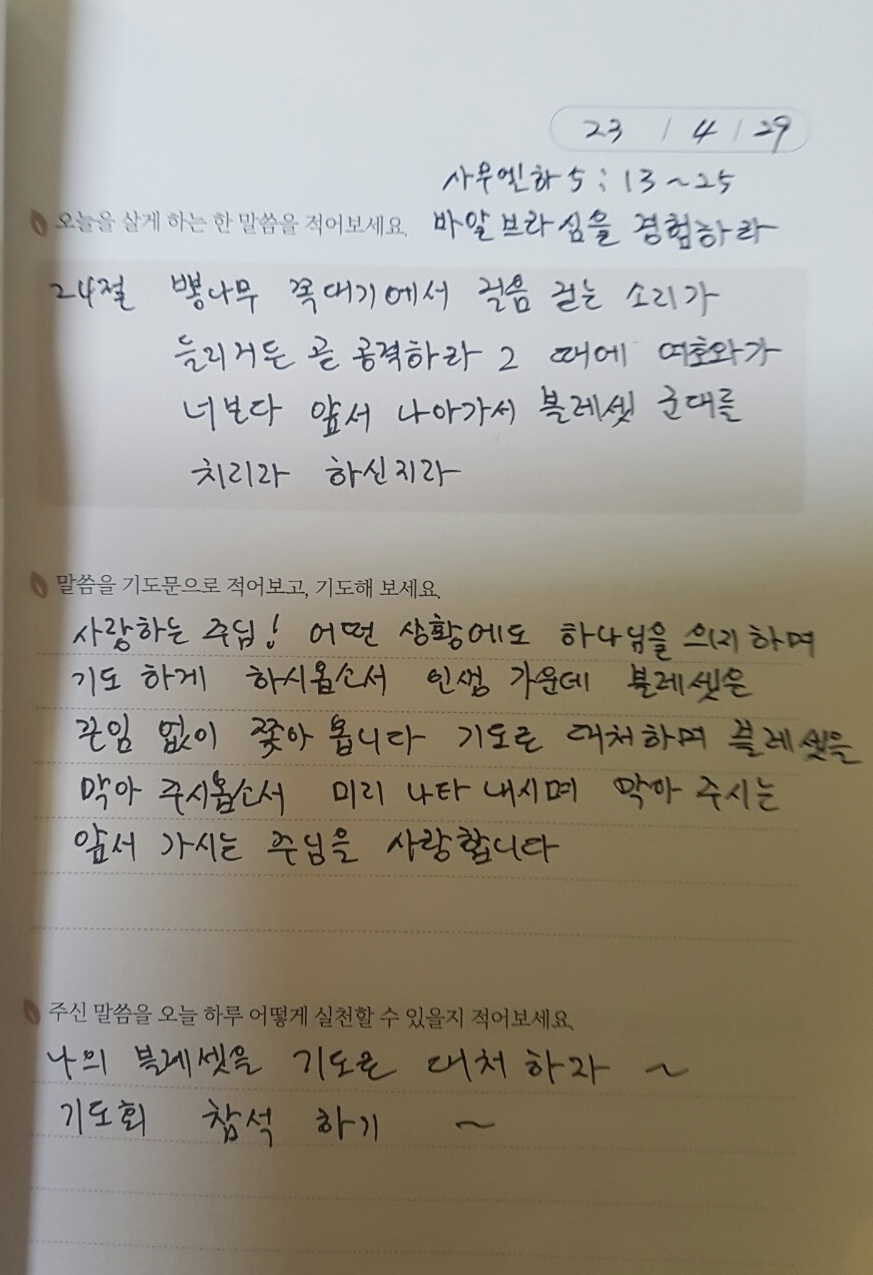 23 / 4 / 29
사무엘하 5 : 13 ~ 25
오늘을 살게 하는 한 말씀을 적어보세요. 바알브라심을 경험하라
24절 뽕나무 꼭대기에서 걸음 걷는 소리가
들리거든 곧 공격하라 그 때에 여호와가
너보다 앞서 나아가서 블레셋 군대를
치리라 하신지라
말씀을 기도문으로 적어보고, 기도해 보세요.
사랑하는 주님! 어떤 상황에도 하나님을 의지하며
기도하게 하시옵소서 인생 가운데 블레셋은
끈임 없이 쫓아 옵니다 기도로 대처하며 블레셋을
막아 주시옵소서 미리 나타 내시며 막아 주시는
앞서 가시는 주님을 사랑합니다
주신 말씀을 오늘 하루 어떻게 실천할 수 있을지 적어보세요.
나의 블레셋을 기도로 대처하자 ~
기도회 참석 하기 ~